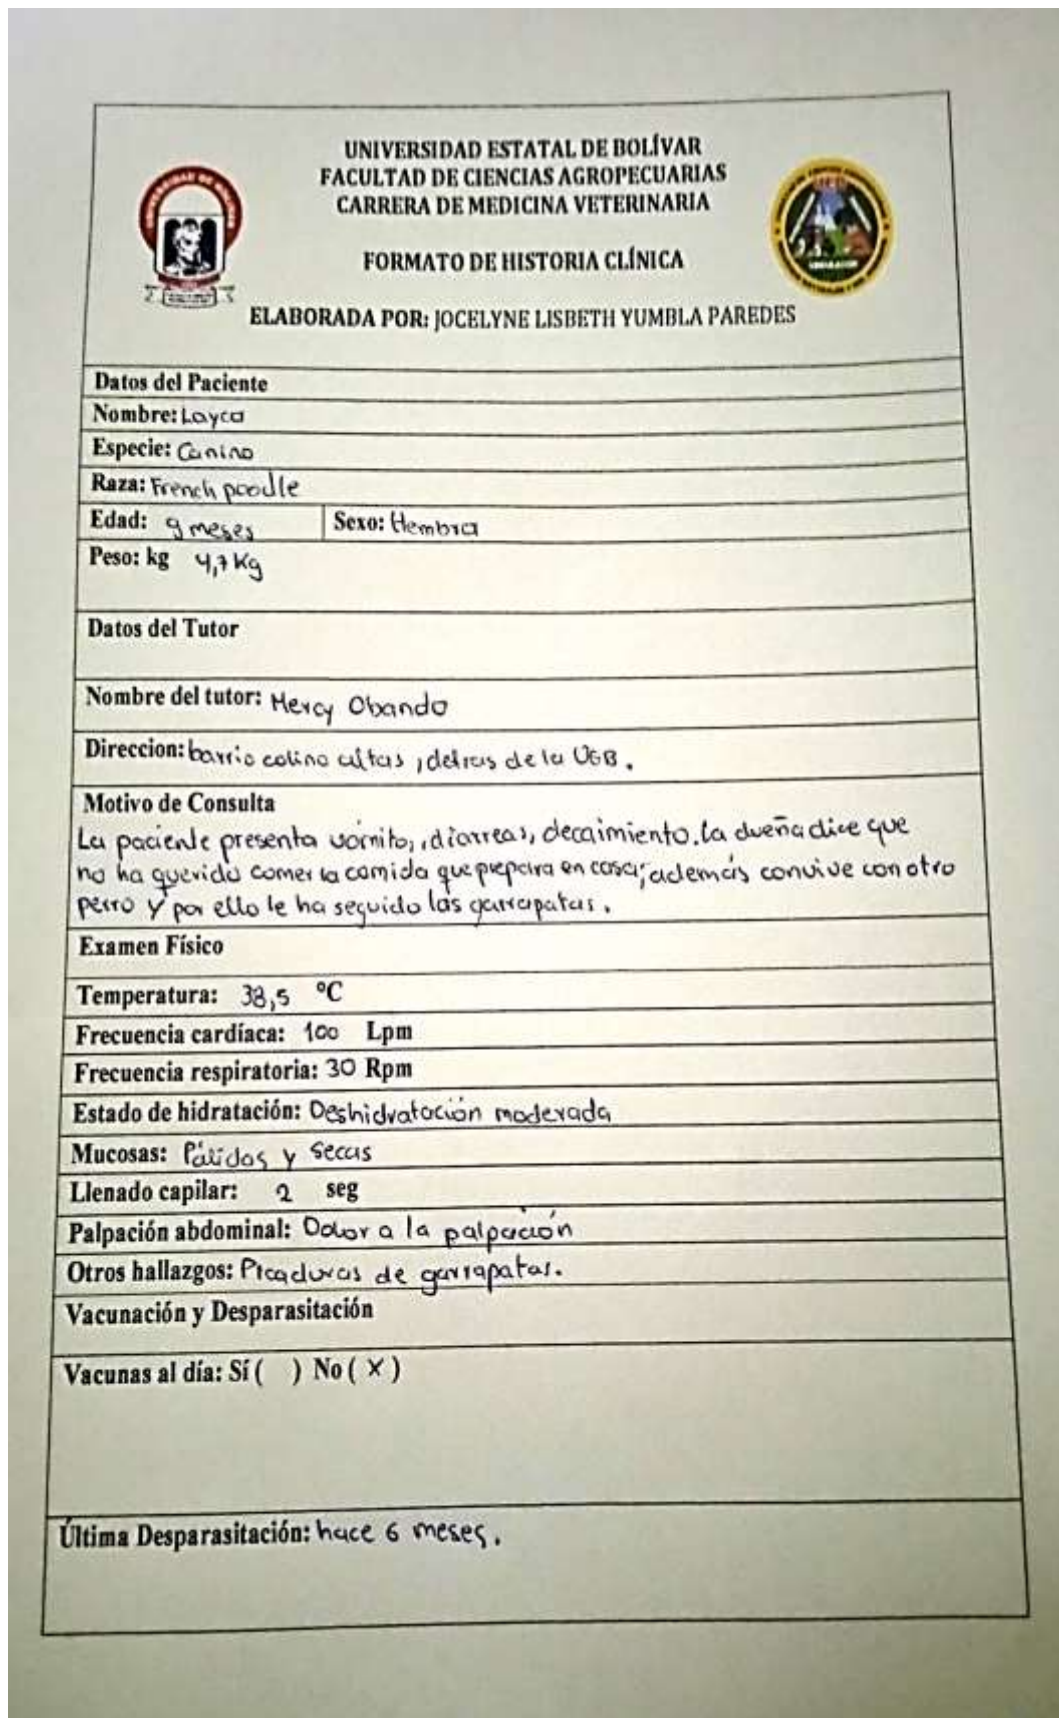 UNIVERSIDAD ESTATAL DE BOLÍVAR
FACULTAD DE CIENCIAS AGROPECUARIAS
CARRERA DE MEDICINA VETERINARIA
FORMATO DE HISTORIA CLÍNICA
ELABORADA POR: JOCELYNE LISBETH YUMBLA PAREDES
Datos del Paciente
Nombre: Layca
Especie: Canino
Raza: French poodle
Edad: 9 meses Sexo: Hembra
Peso: kg 4,7 Kg
Datos del Tutor
Nombre del tutor: Mercy Obando
Direccion: barrio colina altas, detras de la UEB.
Motivo de Consulta
La paciente presenta vómito, diarreas, decaimiento. la dueña dice que
no ha querido comer la comida que prepara en casa; además convive con otro
perro y por ello le ha seguido las garrapatas.
Examen Físico
Temperatura: 38,5 °C
Frecuencia cardíaca: 100 Lpm
Frecuencia respiratoria: 30 Rpm
Estado de hidratación: Deshidratación moderada
Mucosas: Pálidas y Secas
Llenado capilar: 2 seg
Palpación abdominal: Dolor a la palpación
Otros hallazgos: Picaduras de garrapatas.
Vacunación y Desparasitación
Vacunas al día: Sí ( ) No ( X )
Última Desparasitación: hace 6 meses.